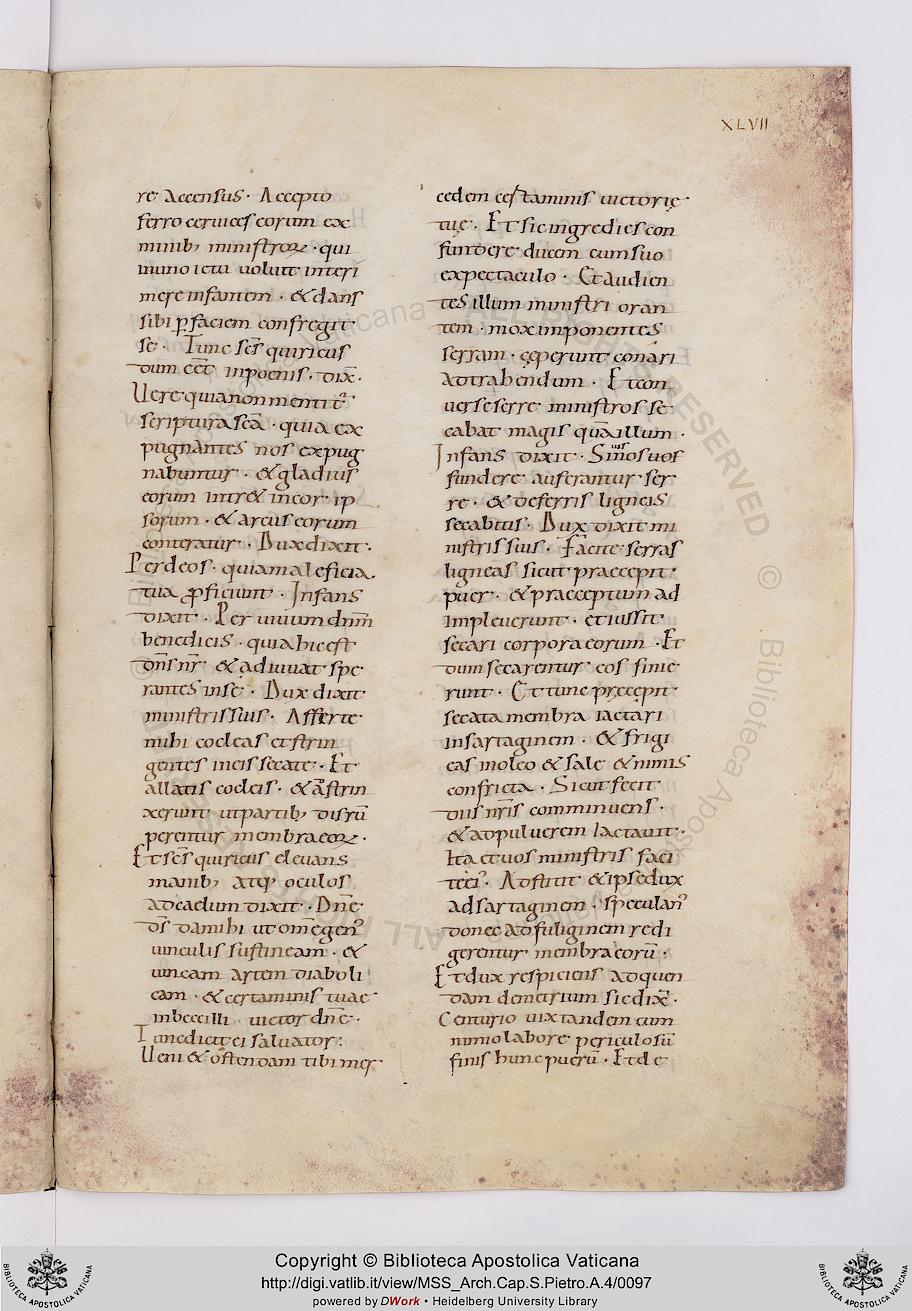 XLVII
re accensus · Accepto
ferro ceruices eorum ex
minib; ministrorꝝ · qui
in uno ictu uoluit interi
mere infantem · & dans
sibi ꝑ faciem confregit
se · Tunc scs̄ quiricus
dum eēt in poenis · dix̄ ·
Uere quia non mentit᷑
scriptura scā · quia ex
pugnantes nos expug
nabuntur · & gladius
eorum intr& in cor ip
sorum · & arcus eorum
conteratur · Dux dixit ·
Perdeos · quia maleficia
tua ꝓficiunt · Infans
dixit · Per uiuum dnm̄
benedicis · quia hic est
dns̄ nr̄ & adiuuat spe
rantes in se · Dux dixit
ministris suis · Afferte
mihi cocleas et strin
gentes in eis secate · Et
allatis cocleis · & astrin
xerunt ut partib; disrū
perentur membra eorꝝ ·
Et scs̄ quiricus eleuans
manib; atq; oculos
ad caelum dixit · Dn̄e
ds̄ da mihi ut om̄e gen᷑
uinculis sustineam · &
uincam artem diaboli
cam · & certaminis tuae
inbecilli uictor dn̄e ·
Tunc dicit ei saluator ·
Ueni & ostendam tibi mer
cedem certaminis uictorię
tuę · Et sic ingredies con
fundere ducem cum suo
expectaculo · Et audien
tes illum ministri oran
tem · mox imponentes
serram · cęperunt conari
ad trahendum · Et con
uerse serre ministros se
cabat magis quā illum ·
Infans dixit · Si nos uos
fundere auferantur ser
re · & de ferris ligneis
secabitis · Dux dixit mi
nistris suis · Facite serras
ligneas sicut praecepit
puer · & praeceptum ad
impleuerunt · et iussit
secari corpora eorum · Et
dum secarentur eos finie
runt · Et tunc pręcepit
secata membra iactari
in sartaginem · & frigi
eas in oleo & sale & nimis
confricta · Sicut fecit
diis nr̄is comminuens ·
& ad puluerem lactauit ·
Ita et uos ministris faci
teei᷑ · Adstitit & ipse dux
ad sartaginem · speculan᷑
donec ad fuliginem redi
gerentur membra eorū ·
Et dux respiciens ad quen
dam demetrium sic dix̄ ·
Centurio uix tandem cum
nimio labore periculosū
finis hunc puerū · Et de
Copyright © Biblioteca Apostolica Vaticana
http://digi.vatlib.it/view/MSS_Arch.Cap.S.Pietro.A.4/0097
powered by DWork • Heidelberg University Library